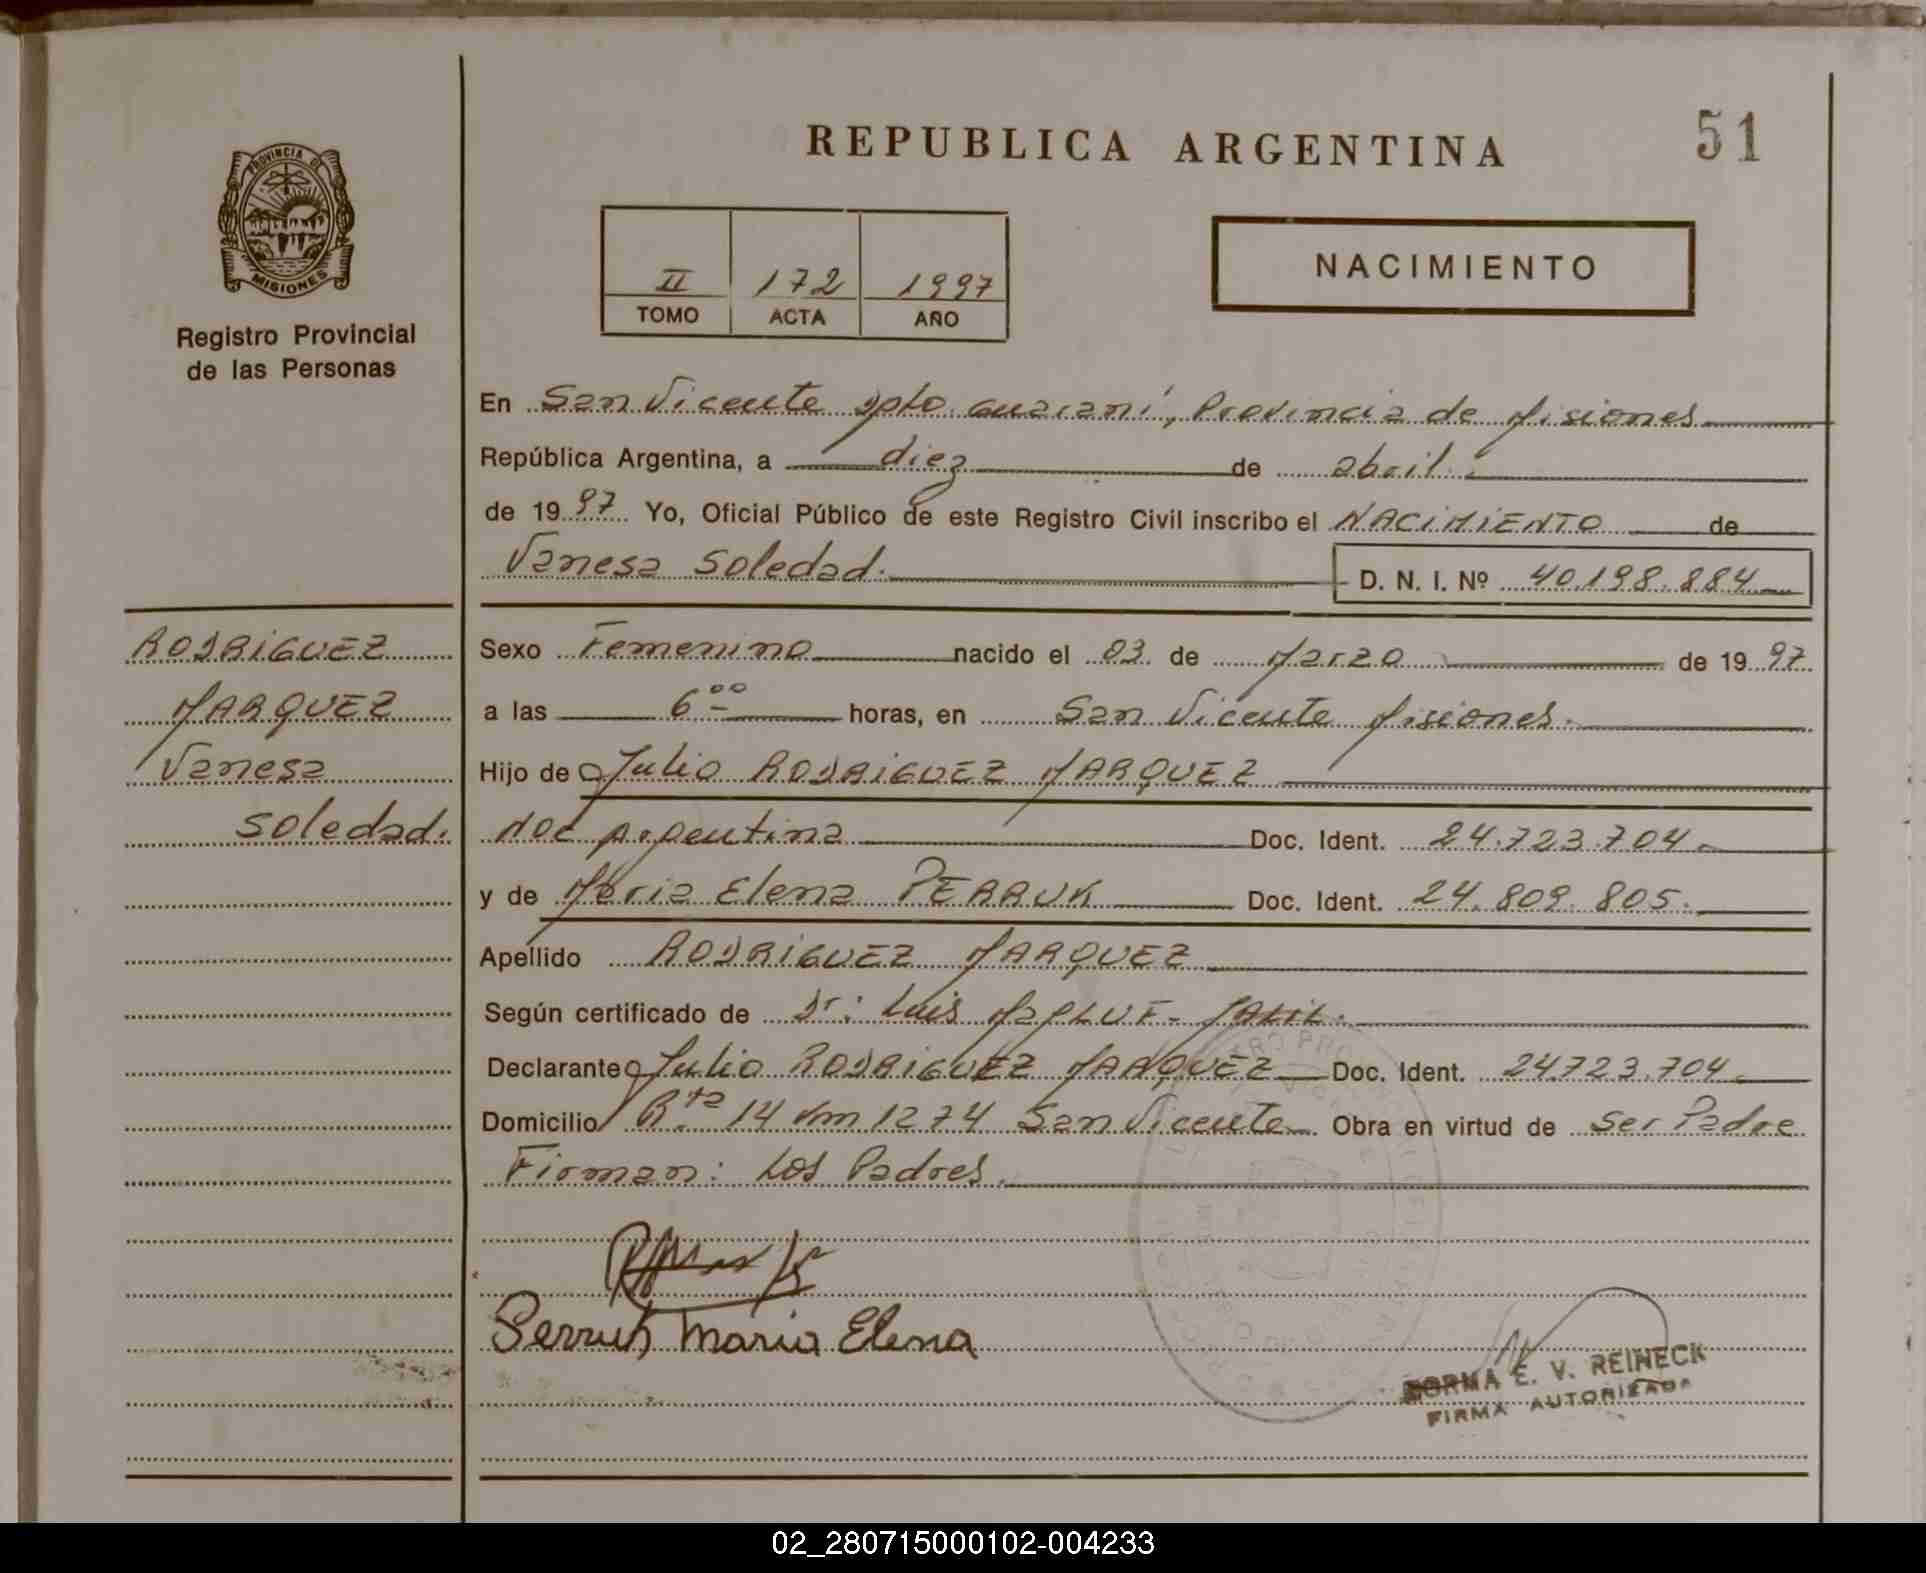 REPUBLICA ARGENTINA
51
PROVINCIA DE
MISIONES
Registro Provincial
de las Personas
II 172 1997
TOMO ACTA AÑO
NACIMIENTO
En San Vicente Dpto Guaraní, Provincia de Misiones
República Argentina, a diez de abril.
de 1997 Yo, Oficial Público de este Registro Civil inscribo el NACIMIENTO de
Vanesa Soledad.
D. N. I. Nº 40.198.884
RODRIGUEZ
MARQUEZ
Vanesa
Soledad.
Sexo Femenino nacido el 03 de Marzo de 1997
a las 6 00 horas, en San Vicente Misiones.
Hijo de Julio RODRIGUEZ MARQUEZ
Nac Argentina Doc. Ident. 24.723.704.
y de Maria Elena PERRUK Doc. Ident. 24.809.805.
Apellido RODRIGUEZ MARQUEZ
Según certificado de Dr: Luis MAPLUF - JALIL.
Declarante Julio RODRIGUEZ MARQUEZ Doc. Ident. 24.723.704
Domicilio Rta 14 Km 1274 San Vicente Obra en virtud de Ser Padre
Firman: Los Padres.
Perruk Maria Elena
NORMA E. V. REINECK
FIRMA AUTORIZADA
02_280715000102-004233